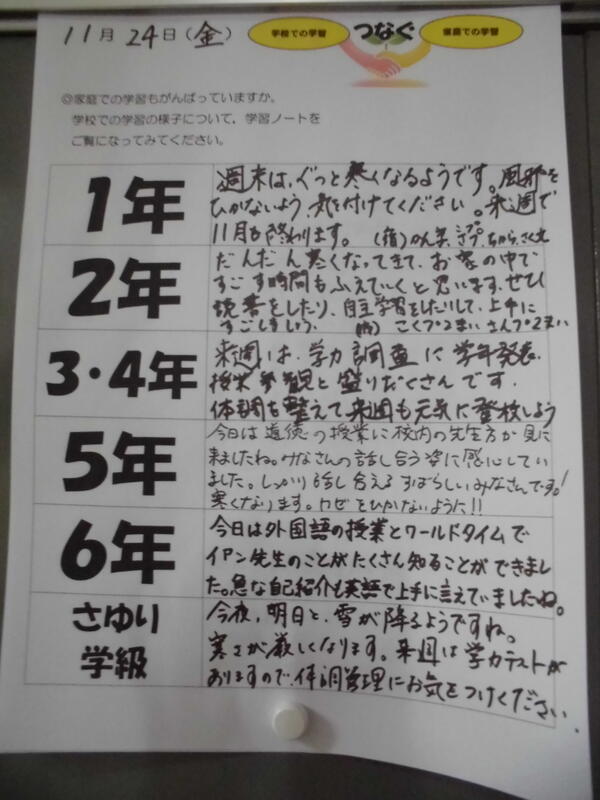 11月24日(金)
学校での学習
つなぐ
家庭での学習
◎家庭での学習もがんばっていますか。
学校での学習の様子について、学習ノートを
ご覧になってみてください。
1年
週末は、ぐっと寒くなるようです。風邪を
ひかないよう、気を付けてください。来週で
11月も終わります。
2年
だんだん寒くなってきて、お家の中で
すごす時間もふえていくと思います。ぜひ
読書をしたり、自主学習をしたりして、上手に
すごしましょう。 こくプ2まい さんプ2まい
3・4年
来週は、学力調査に学年発表、
授業参観と盛りだくさんです。
体調を整えて来週も元気に登校しよう
5年
今日は道徳の授業に校内の先生方が見に
来ましたね。みなさんの話し合う姿に感心してい
ました。しっかり話し合えるすばらしいみなさんです!
寒くなります。カゼをひかないように!!
6年
今日は外国語の授業とワールドタイムで
イアン先生のことがたくさん知ることができまし
た。急な自己紹介も英語で上手に言えていましたね。
さゆり
学級
今夜、明日と、雪が降るようですね。
寒さが厳しくなります。来週は学力テストが
ありますので、体調管理にお気をつけください。